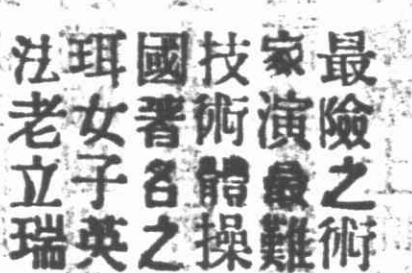 最險之術
家演最難
技術體操
國著名之
珥女子英
法老立瑞